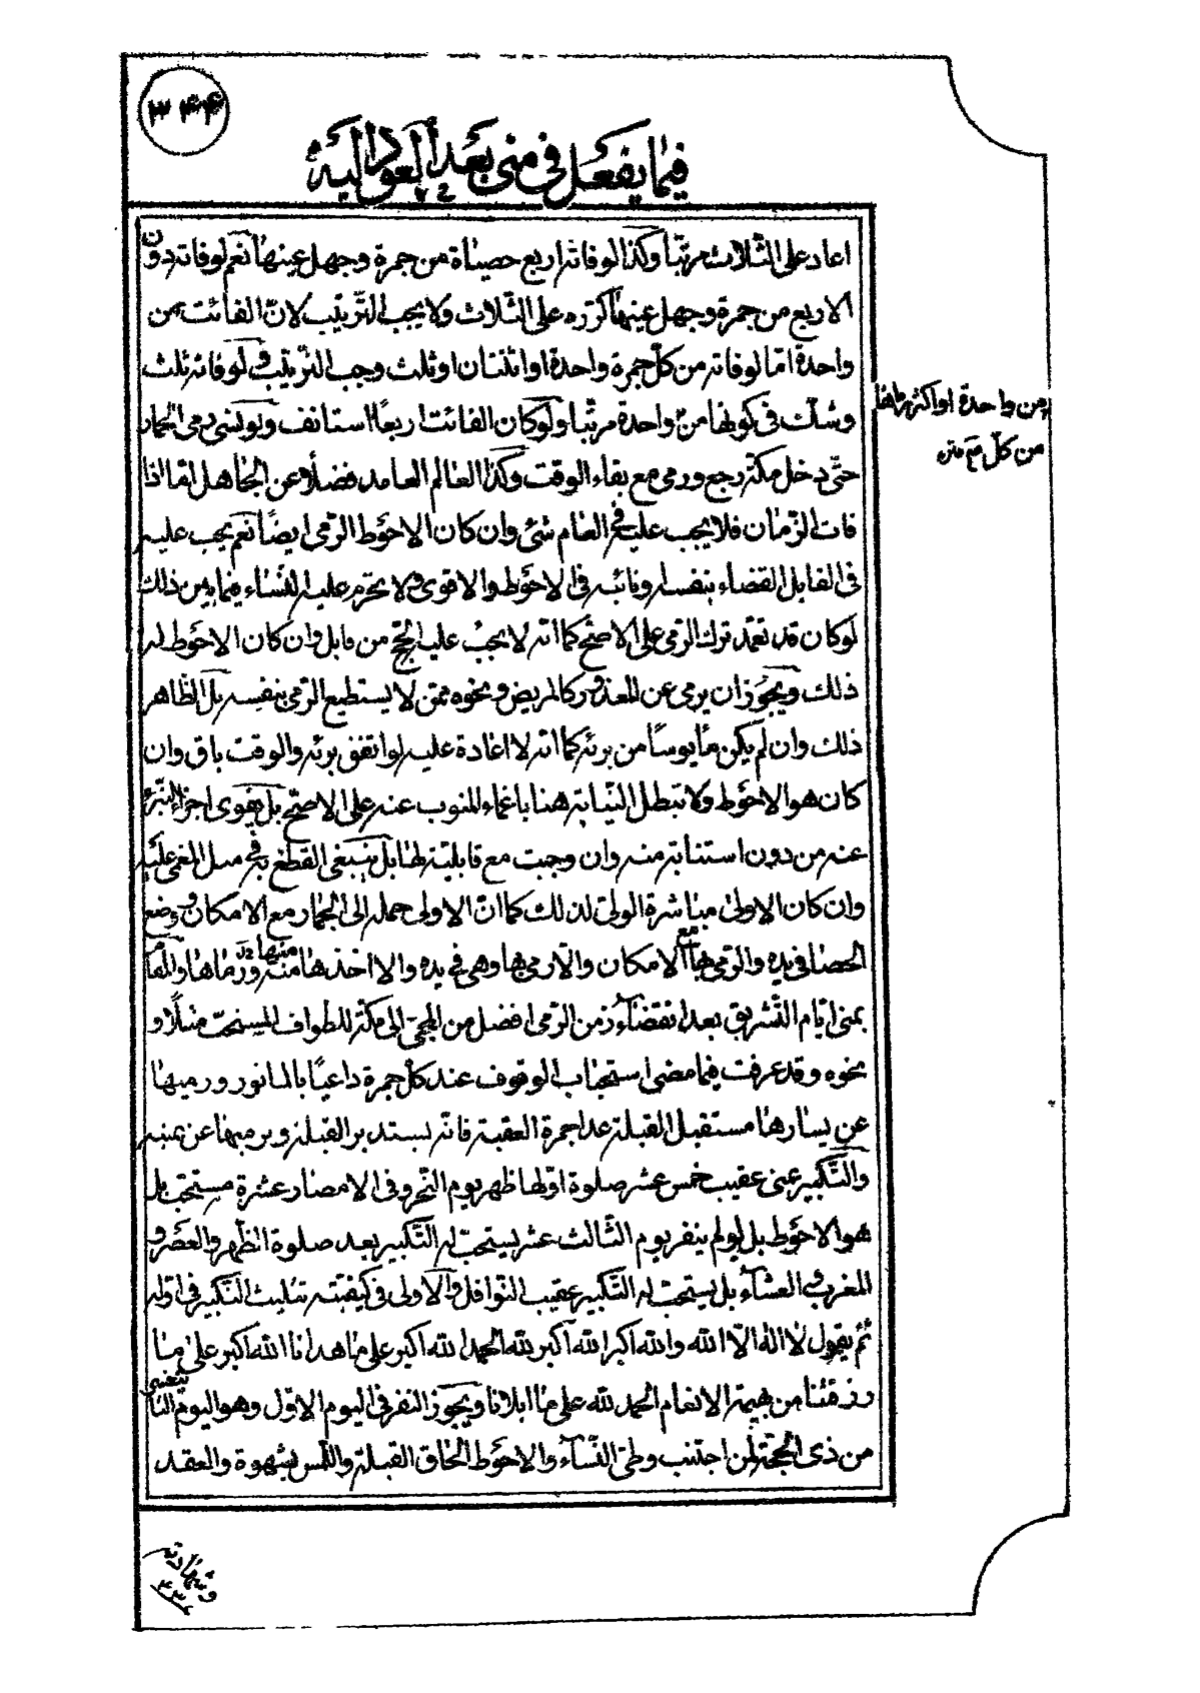 ۳۴۴
فيما يفعل فى منى بعد العود اليه
اعاد على الثّلاث مرتّبا وكذا لو فاته اربع حصياة من جمرة وجهل عينها نعم لو فاته دون
الاربع من جمرة وجهل عينها كرّره على الثّلاث ولا يجب التّرتيب لانّ الفائت من
واحدة امّا لو فاته من كلّ جمرة واحدة او اثنتان او ثلث وجب التّرتيب ولو فاته ثلث
وشكّ فى كونها من واحدة مرتّبا ولو كان الفائت اربعًا استانف ولو نسى رمى الجمار
من واحدة او اكثر رماها
من كلّ مع
حتّى دخل مكّة رجع ورمى مع بقاء الوقت وكذا العالم العامد فضلًا عن الجاهل امّا اذا
فات الزّمان فلا يجب عليه فى العام شئ وان كان الاحوط الرّمى ايضًا نعم يجب عليه
فى القابل القضاء بنفسه او نائبه فى الاحوط والاقوى ولا يحرم عليه النّساء فيما بين ذلك
لو كان قد تعمّد ترك الرّمى على الاصحّ كما انّه لا يجب عليه الحجّ من قابل وان كان الاحوط له
ذلك ويجوز ان يرمى عن المعذور كالمريض ونحوه ممّن لا يستطيع الرّمى بنفسه بل الظّاهر
ذلك وان لم يكن مأيوسًا من برئه كما انّه لا اعادة عليه لو اتفق برئه والوقت باق وان
كان هو الاحوط ولا تبطل النّيابة هنا باغماء المنوب عنه على الاصحّ بل يقوى اجزاء التبرّع
عنه من دون استنابة منه وان وجبت مع قابليّته لها بل ينبغى القطع به فى مسل المغمى عليه
وان كان الاولى مباشرة الولىّ لذلك كما انّ الاولى حمله الى الجمار مع الامكان ووضع
الحصا فى يده والرّمى بها مع الامكان والّا رمى بها وهى فى يده والا اخذها منه ورماها والمقام
منها
بمنى ايّام التّشريق بعد انقضاء زمن الرّمى افضل من المجىء الى مكّة للطواف المستحبّ مثلًا و
نحوه وقد عرفت فيما مضى استحباب الوقوف عند كلّ جمرة داعيًا بالماثور ورميها
عن يسارها مستقبل القبلة عدا جمرة العقبة فانّه يستدبر القبلة ويرميها عن يمينه
والتّكبير بمنى عقيب خمس عشر صلوة اوّلها ظهر يوم النّحر وفى الامصار عشرة مستحبّ بل
هو الاحوط بل لو لم ينفر يوم الثّالث عشر يستحبّ له التّكبير بعد صلوة الظّهر والعصر و
المغرب والعشاء بل يستحبّ له التّكبير عقيب النّوافل والاولى فى كيفيّته تثليث التّكبير فى اوّله
ثمّ يقول لا اله الّا الله والله اكبر الله اكبر لله الحمد الله اكبر على ما هدانا الله اكبر على ما
رزقنا من بهيمة الانعام الحمد لله على ما ابلانا ويجوز النفر فى اليوم الاوّل وهو اليوم الثانى عشر
من ذى الحجّة لمن اجتنب وطى النّساء والاحوط الحاق القبلة واللّمس بشهوة والعقد
وشهادته